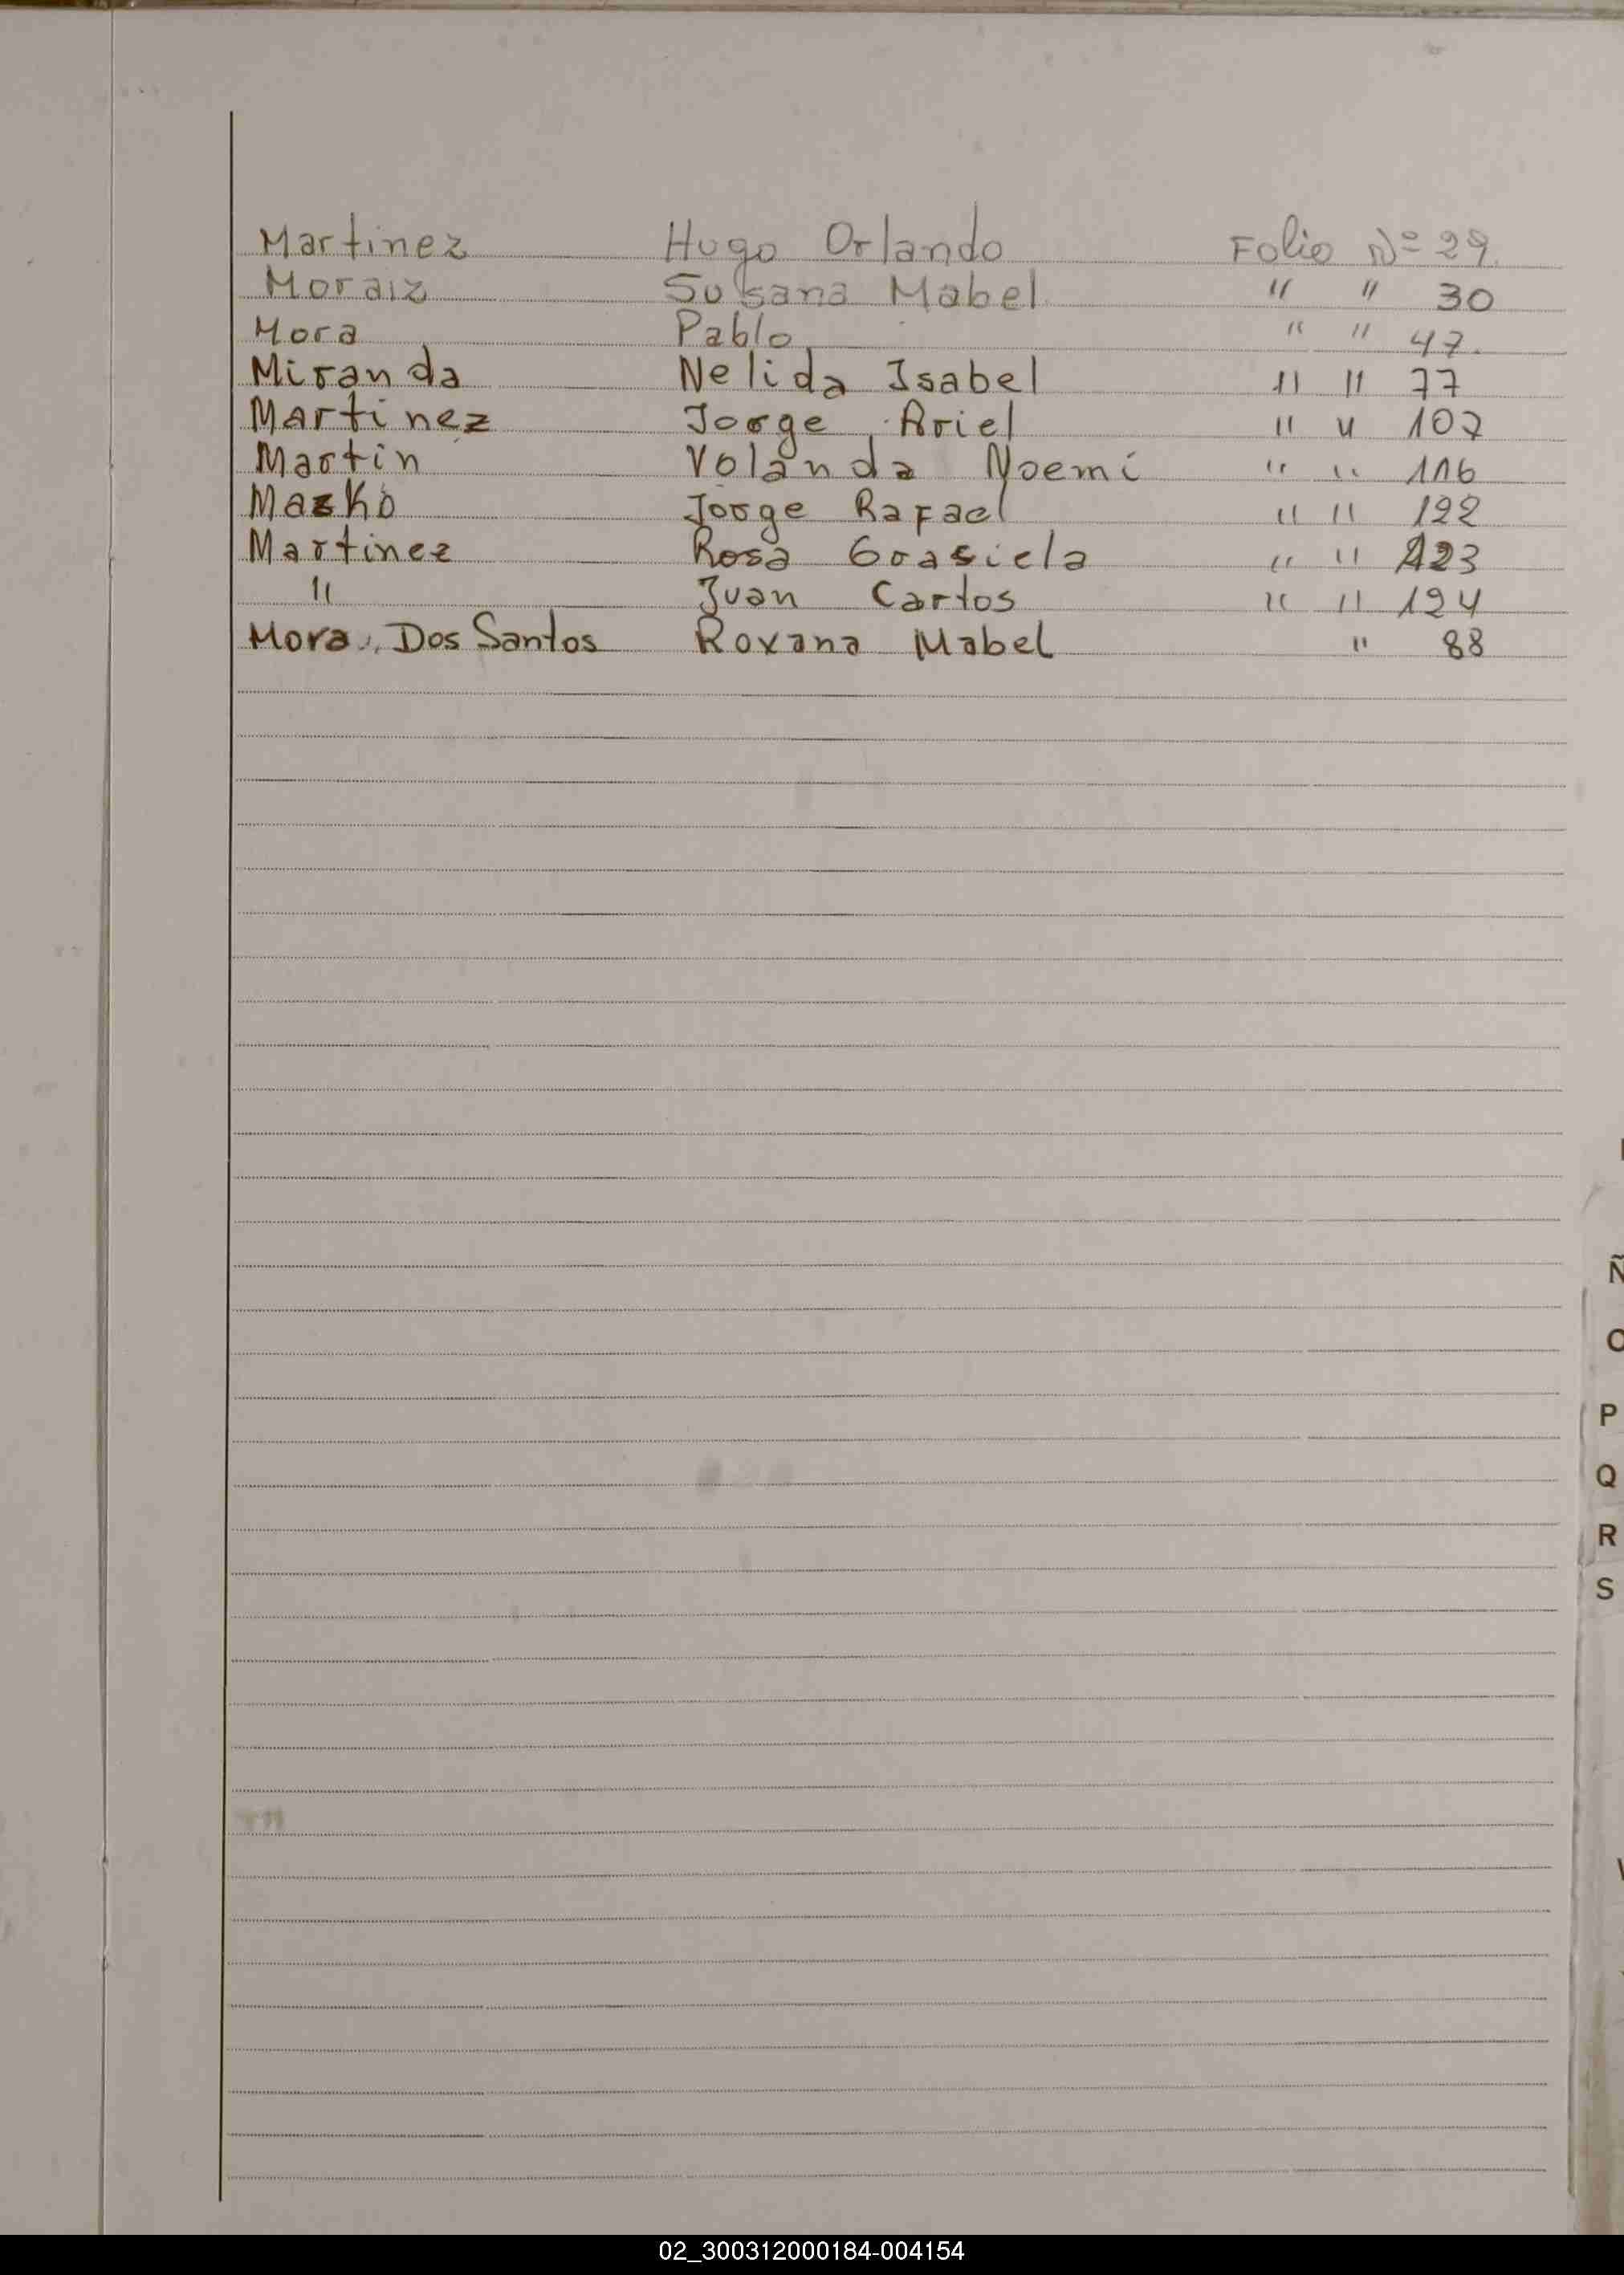 Martinez Hugo Orlando Folio Nº 29.
Moraiz Susana Mabel " " 30
Mora Pablo " " 47.
Miranda Nelida Isabel " " 77
Martinez Jorge Ariel " " 107
Martin Yolanda Noemi " " 116
Mazko Jorge Rafael " " 122
Martinez Rosa Grasiela " " 123
" Juan Carlos " " 124
Mora, Dos Santos Roxana Mabel " 88
Ñ
O
P
Q
R
S
02_300312000184-004154